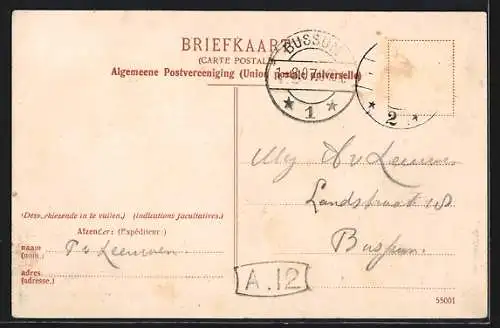 BRIEFKAART
(CARTE POSTALE)
Algemeene Postvereeniging (Union postale universelle)
BUSSUM
1
2
Mej A v Leeuwen
Landstraat
Bussum.
(Deze zijde is in te vullen.) (Indications facultatives.)
Afzender: (Expéditeur:)
naam
(nom.)
P v Leeuwen.
adres
(adresse.)
A.12
55001